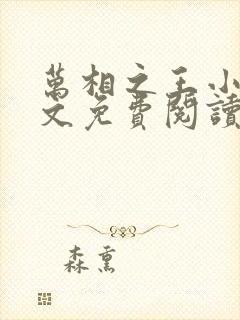 萬相之王小
文免費閱讀
森熏